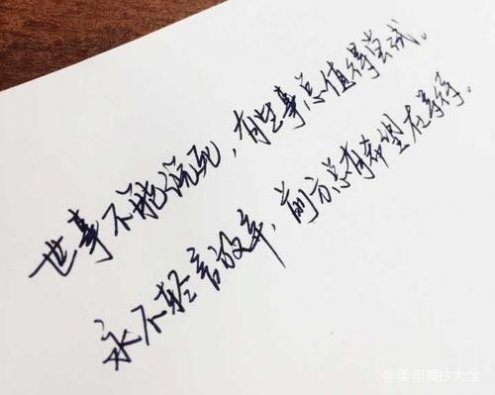 世事不能说死，有些事总值得尝试。
永不轻言放弃，前方总有希望在等待。
@美句摘抄大全